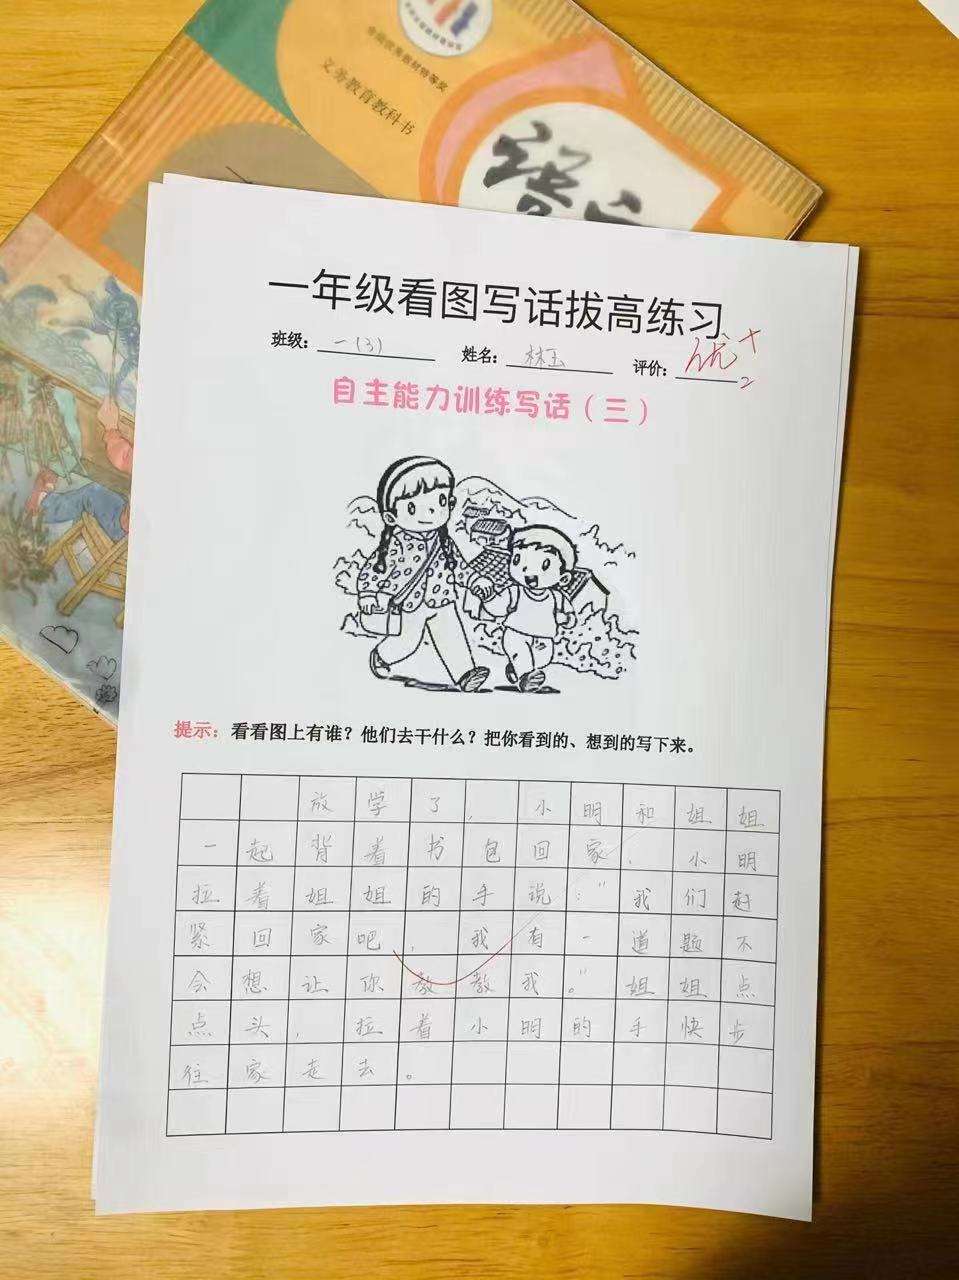 全国优秀教材特等奖
义务教育教科书
语文
一年级看图写话拔高练习
班级：一(3) 姓名：林玉 评价：优+2
自主能力训练写话（三）
提示：看看图上有谁？他们去干什么？把你看到的、想到的写下来。
放学了，小明和姐姐
一起背着书包回家，小明
拉着姐姐的手说："我们赶
紧回家吧，我有一道题不
会想让你教教我。"姐姐点
点头，拉着小明的手快步
往家走去。